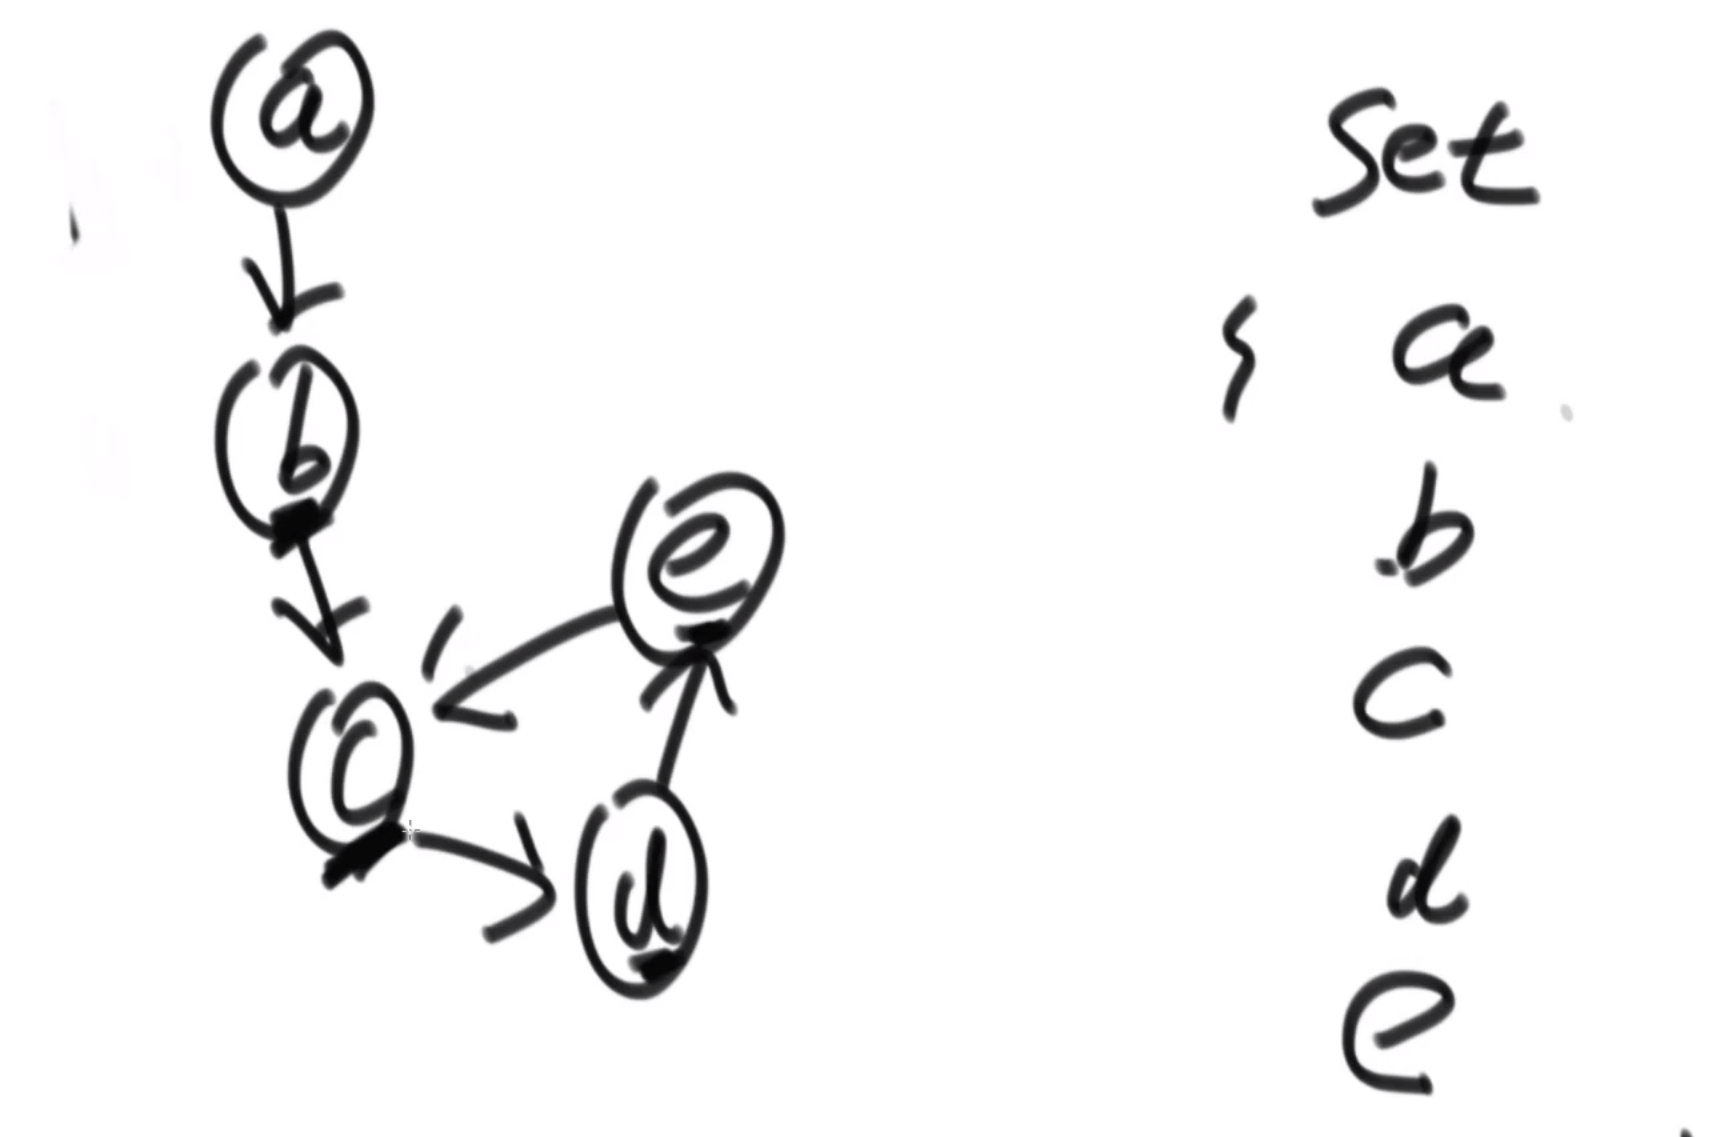 a
b
c
d
e
set
{ a
b
c
d
e